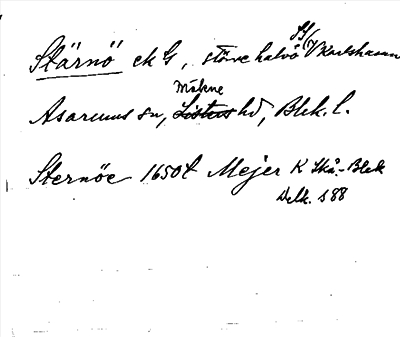 Stärnö ekG, större halvö SV Karlshamn
Asarums sn, Listers Mākne hd, Blek. l.
Sternöe 1650t Mejer K Skå.-Blek
Delk. s 88